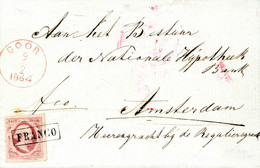 GOOR
9
2
1864
Aan het Bestuur
der Nationale Hypotheek
Bank
fco.
Amsterdam
Heerengracht bij de Reguliersgracht
FRANCO